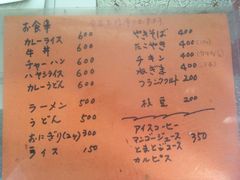 お食事
カレーライス 600
牛丼 600
チャーハン 600
ハヤシライス 600
カレーうどん 600
ラーメン 500
うどん 500
おにぎり(2ヶ) 300
ライス 150
やきそば 400
たこやき 400
チキン 400
ねぎま 400
フランクフルト 200
枝豆 200
アイスコーヒー
マンゴージュース 350
とまとジュース
カルピス